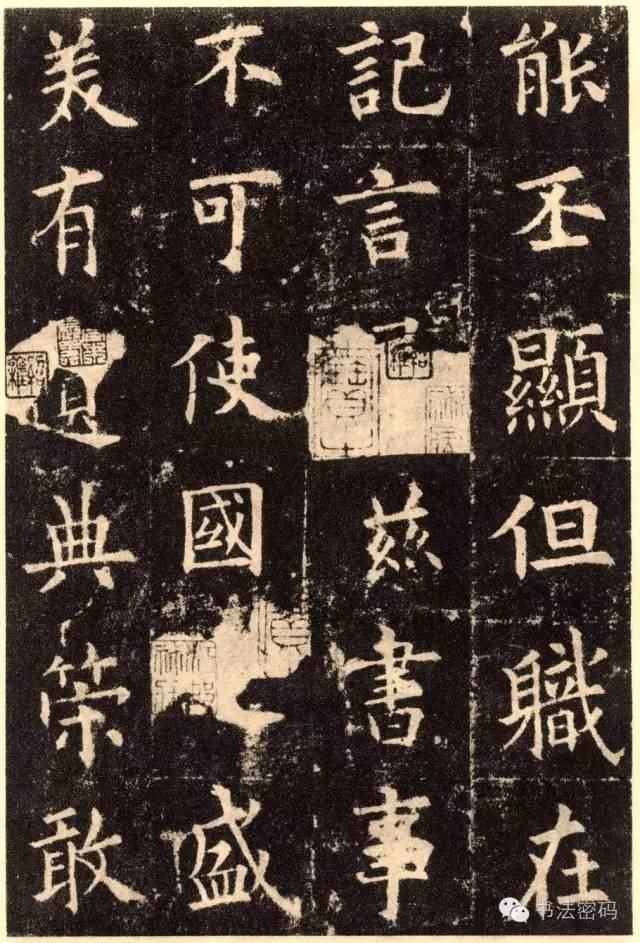 能丕顯但軄在
記言茲書事
不可使國盛
美有典策敢
书法密码